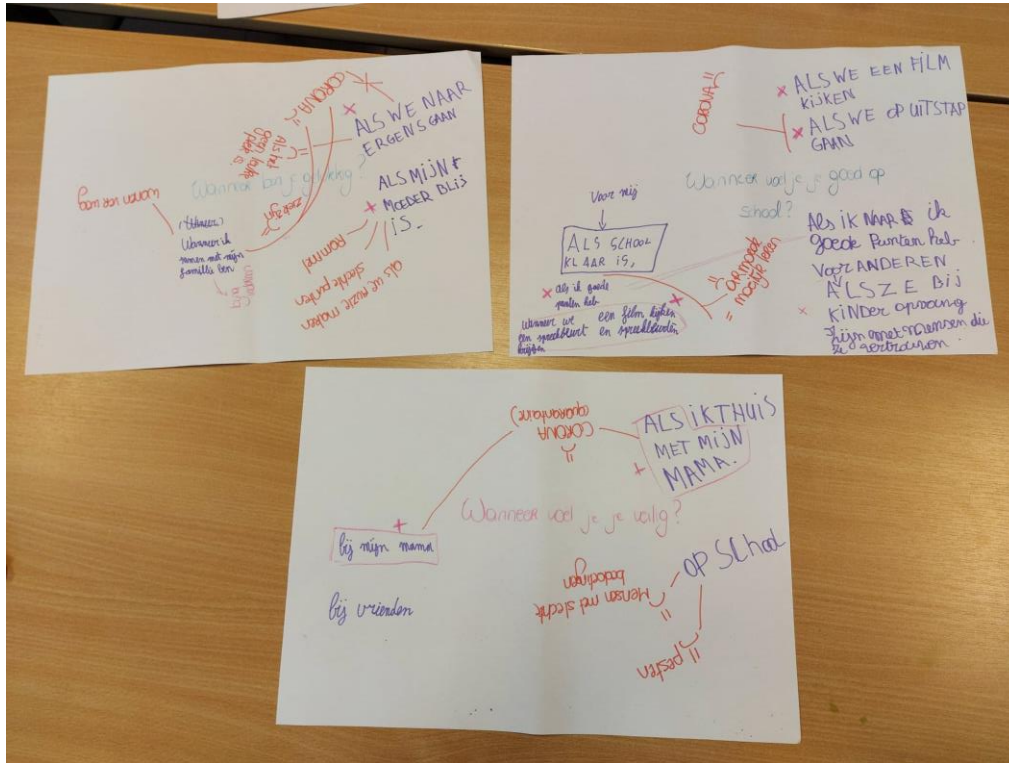 CORONA
ALS WE NAAR
ERGENS GAAN
Als het
geen leuke
plek is
Wanneer ben je gelukkig?
ALS MIJN
MOEDER BLIJ
IS.
wonen ver weg
ziek zijn
Wanneer ik
samen met mijn
familie ben
Rommel
slechte punten
als we ruzie maken
CORONA
ALS WE EEN FILM
KIJKEN
ALS WE OP UITSTAP
GAAN
Wanneer voel je je goed op
school?
Voor mij
ALS SCHOOL
KLAAR IS,
als ik goede
punten heb
Wanneer we een film kijken
een speelbeurt en
krijgen
armoede
moeilijk leren
Als ik NAAR ik
goede Punten heb
Voor ANDEREN
ALS ZE Bij
KiNDER opvang
Zijn met mensen die
ze vertrouwen.
CORONA
(quarantaine)
ALS IK THUIS
MET MIJN
MAMA.
Wanneer voel je je veilig?
bij mijn mama
bij vrienden
Mensen met slechte
bedoelingen
OP SChool
pesten